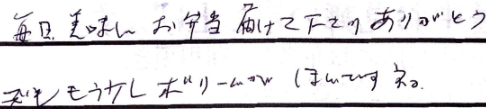 毎日美味しいお弁当届けて下さりありがとう
でももう少しボリュームがほしいですね。